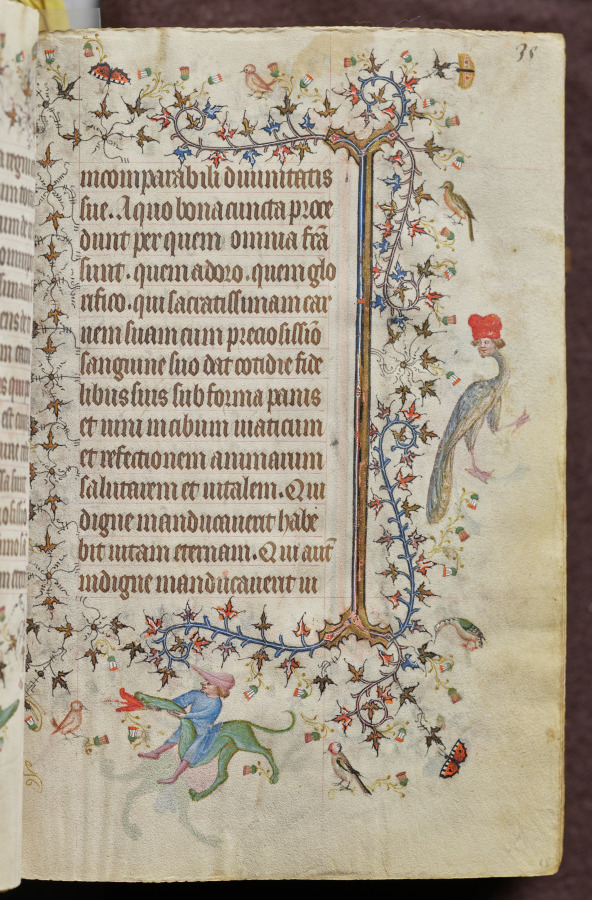 38
incomparabili diuinitatis
sue. A quo bona cuncta proce
dunt per quem omnia scā
sunt. quem adoro. quem glo
rifico. qui sacratissimam car
nem suam cum preciosissiō
sanguine suo dat cotidie fide
libus suis sub forma panis
et uini in cibum uiaticum
et refectionem animarum
salutarem et uitalem. Qui
digne manducauerit habe
bit uitam eternam. Qui aut̄
indigne manducauerit iu